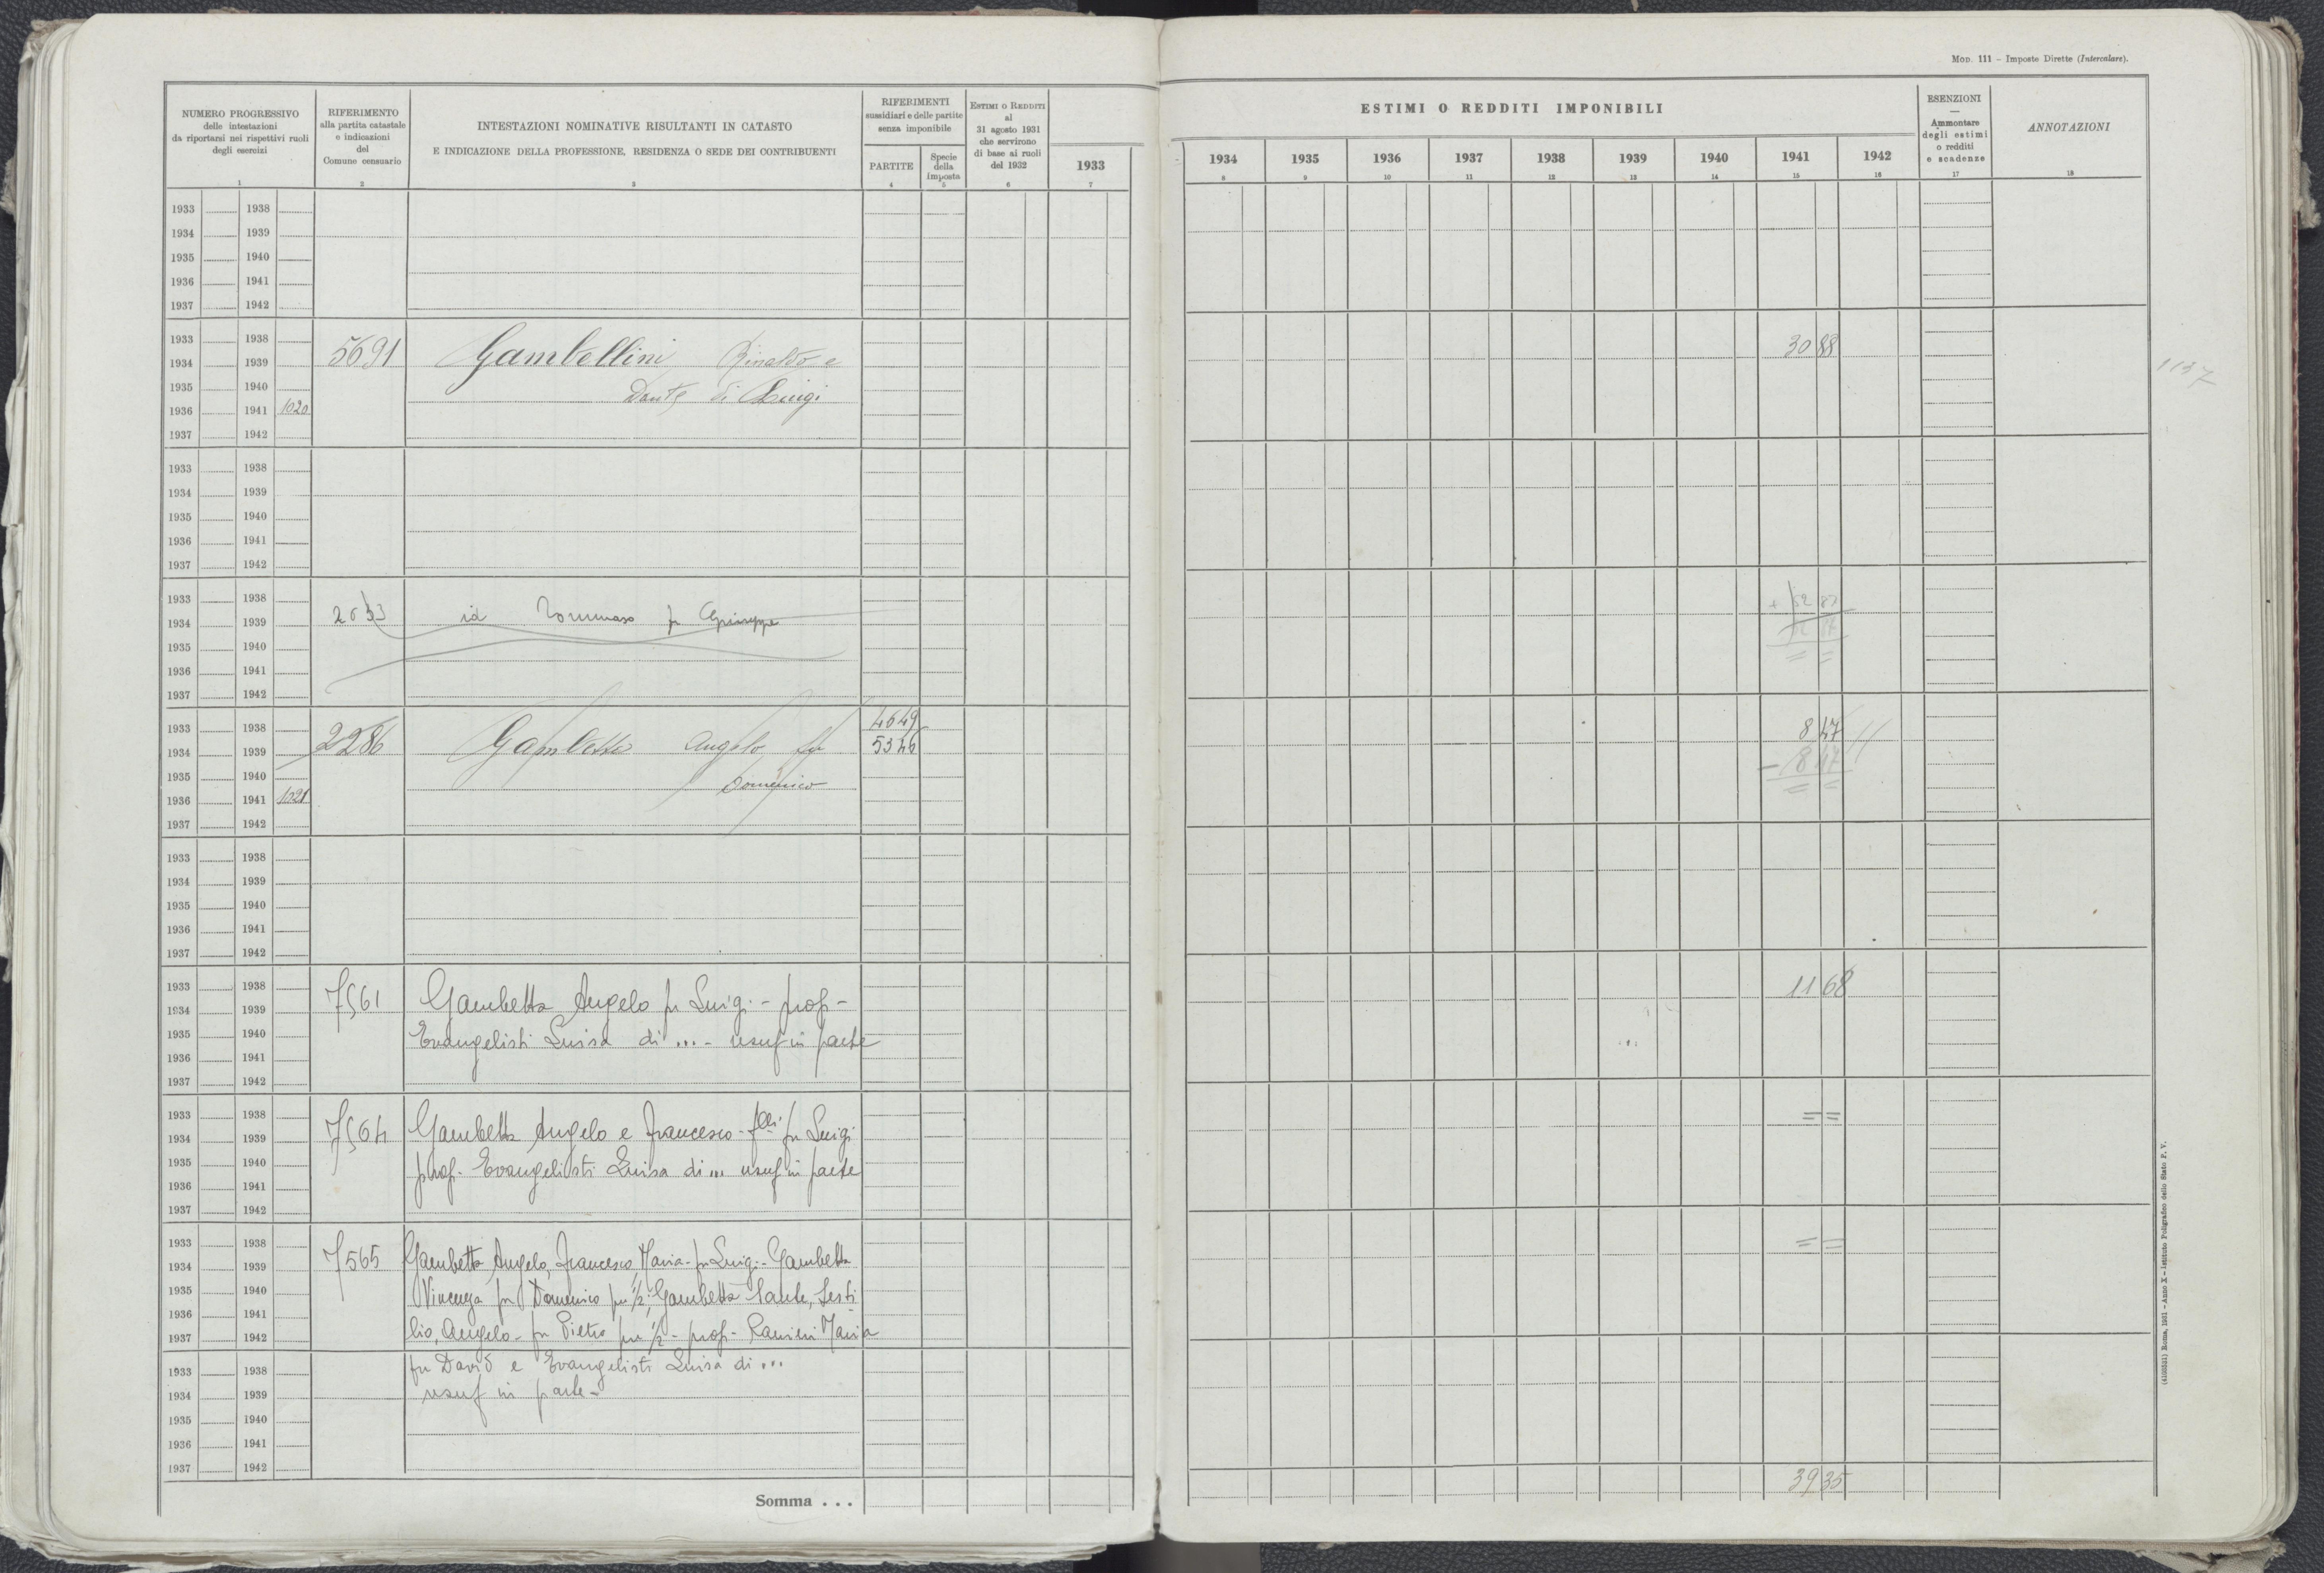 MOD. 111 - Imposte Dirette (Intercalare).
NUMERO PROGRESSIVO
delle intestazioni
da riportarsi nei rispettivi ruoli
degli esercizi
1
RIFERIMENTO
alla partita catastale
e indicazioni
del
Comune censuario
2
INTESTAZIONI NOMINATIVE RISULTANTI IN CATASTO
E INDICAZIONE DELLA PROFESSIONE, RESIDENZA O SEDE DEI CONTRIBUENTI
3
RIFERIMENTI
sussidiari e delle partite
senza imponibile
PARTITE
4
Specie
della
imposta
5
ESTIMI O REDDITI
al
31 agosto 1931
che servirono
di base ai ruoli
del 1932
6
1933
7
ESTIMI O REDDITI IMPONIBILI
1934 1935 1936 1937 1938 1939 1940 1941 1942
8 9 10 11 12 13 14 15 16
ESENZIONI
—
Ammontare
degli estimi
o redditi
e scadenze
17
ANNOTAZIONI
18
1933 1938
1934 1939
1935 1940
1936 1941
1937 1942
1933 1938
1934 1939 5691 Gambellini Rinaldo e 30 88 1137
1935 1940 Dante di Luigi
1936 1941 1020
1937 1942
1933 1938
1934 1939
1935 1940
1936 1941
1937 1942
1933 1938
1934 1939 id Tommaso fu Giuseppe
1935 1940
1936 1941
1937 1942
1933 1938 4649 8 47
1934 1939 2286 Gambetta Angelo fu 5346
1935 1940 Domenico - 8 47
1936 1941 1021 = =
1937 1942
1933 1938
1934 1939
1935 1940
1936 1941
1937 1942
1933 1938 11 68
1934 1939 7561 Gambetta Angelo fu Luigi - prop -
1935 1940 Evangelisti Luisa di ... - usuf in parte
1936 1941
1937 1942
1933 1938 = =
1934 1939 7564 Gambetta Angelo e Francesco - flli fu Luigi
1935 1940 prop. Evangelisti Luisa di ... usuf in parte
1936 1941
1937 1942
1933 1938 = =
1934 1939 7565 Gambetta Angelo, Francesco Maria - fu Luigi - Gambetta
1935 1940 Vincenza fu Domenico per 1/2; Gambetta Sante, Sesti
1936 1941
1937 1942 lio, Angelo - fu Pietro per 1/2 - prop - Ranieri Maria
1933 1938 fu David e Evangelisti Luisa di ...
1934 1939 usuf in parte -
1935 1940
1936 1941
1937 1942
Somma . . . 39 35
(4103521) Roma, 1931 - Anno X - Istituto Poligrafico dello Stato P. V.